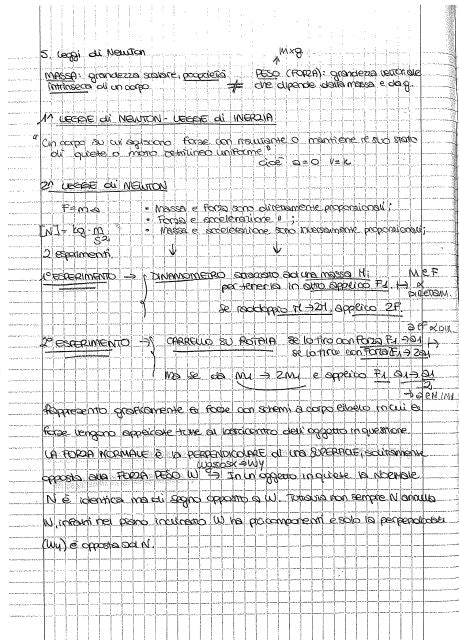 5. Leggi di Newton
m×g
MASSA: grandezza scalare, proprietà intrinseca di un corpo ≠ PESO (FORZA): grandezza vettoriale che dipende dalla massa e da g.
1ª LEGGE di NEWTON - LEGGE di INERZIA
"Un corpo su cui agiscono forze con risultante 0 mantiene il suo stato
di quiete o moto rettilineo uniforme"
cioè a=0 v=k
2ª LEGGE di NEWTON
F=m·a • Massa e Forza sono direttamente proporzionali;
• Forza e accelerazione " ;
[N]= kg·m/s² • Massa e accelerazione sono inversamente proporzionali;
2 esperimenti.
1° ESPERIMENTO → DINAMOMETRO attaccato ad una massa M;
per tenerla in alto applico F1. → M e F α DIRETTAM.
se raddoppio M→2M, applico 2F.
2° ESPERIMENTO → CARRELLO SU ROTAIA se lo tiro con Forza F1→a1
se lo tiro con Forza 2F1→2a1
Ma se da M1→2M1 e applico F1 a1→a1/2
Rappresento graficamente le forze con schemi a corpo libero in cui le
forze vengono applicate tutte al baricentro dell'oggetto in questione.
LA FORZA NORMALE è la PERPENDICOLARE di una SUPERFICIE, solitamente
opposta alla FORZA PESO W → In un oggetto in quiete la NORMALE
N è identica ma di segno opposto a W. Tuttavia non sempre N annulla
W, infatti nel piano inclinato W ha più componenti e solo la perpendicolare
(Wy) è opposta ad N.